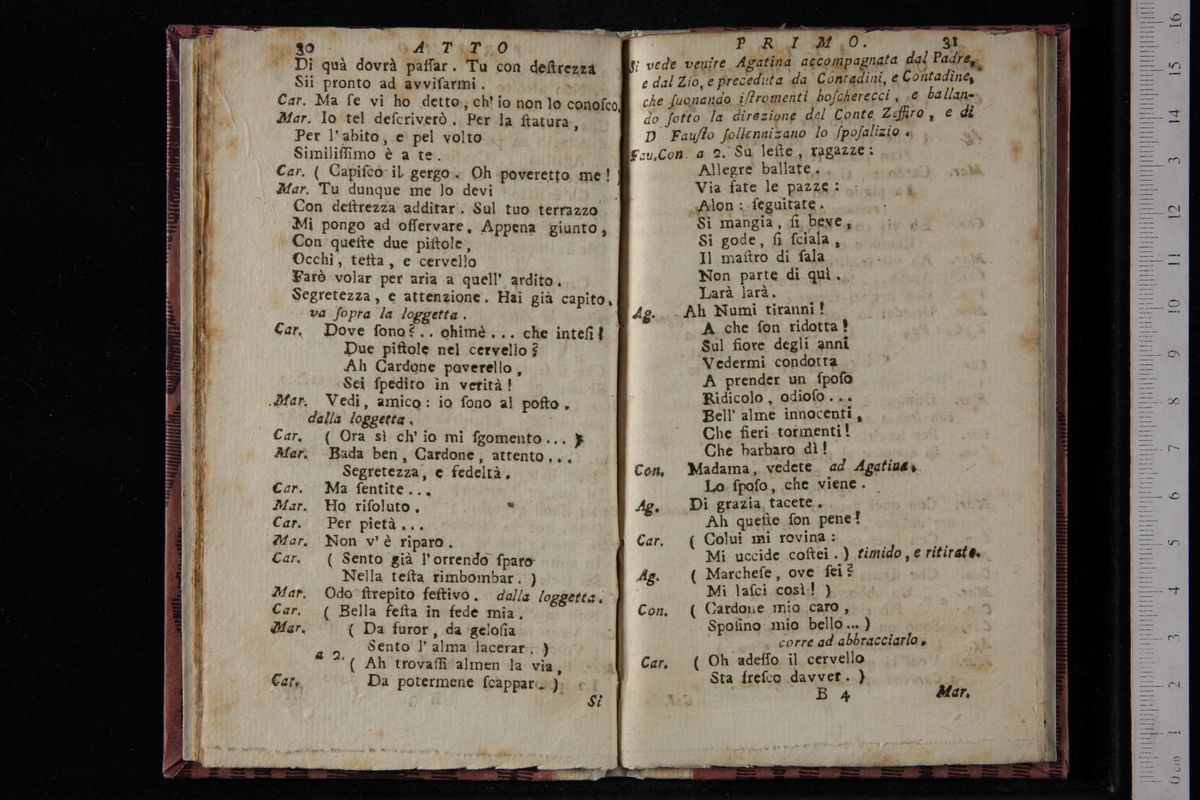 30 ATTO
Di quà dovrà paſſar. Tu con deſtrezza
Sii pronto ad avviſarmi.
Car. Ma ſe vi ho detto, ch' io non lo conoſco.
Mar. Io tel deſcriverò. Per la ſtatura,
Per l'abito, e pel volto
Similiſſimo è a te.
Car. ( Capiſco il gergo. Oh poveretto me! )
Mar. Tu dunque me lo devi
Con deſtrezza additar. Sul tuo terrazzo
Mi pongo ad oſſervare. Appena giunto,
Con queſte due piſtole,
Occhi, teſta, e cervello
Farò volar per aria a quell' ardito.
Segretezza, e attenzione. Hai già capito.
va ſopra la loggetta.
Car. Dove ſono?.. ohimè... che inteſi!
Due piſtole nel cervello?
Ah Cardone poverello,
Sei ſpedito in verità!
Mar. Vedi, amico: io ſono al poſto.
dalla loggetta.
Car. ( Ora sì ch' io mi ſgomento... )
Mar. Bada ben, Cardone, attento...
Segretezza, e fedeltà.
Car. Ma ſentite...
Mar. Ho riſoluto.
Car. Per pietà...
Mar. Non v' è riparo.
Car. ( Sento già l'orrendo ſparo
Nella teſta rimbombar. )
Mar. Odo ſtrepito feſtivo. dalla loggetta.
Car. ( Bella feſta in fede mia.
Mar. ( Da furor, da geloſia
Sento l' alma lacerar. )
a 2.
( Ah trovaſſi almen la via,
Car. Da potermene ſcappar. )
Si
PRIMO. 31
Si vede venire Agatina accompagnata dal Padre,
e dal Zio, e preceduta da Contadini, e Contadine,
che ſuonando iſtromenti boſcherecci, e ballan-
do ſotto la direzione del Conte Zeffiro, e di
D Fauſto ſollennizano lo ſpoſalizio.
Fau.Con a 2. Su leſte, ragazze:
Allegre ballate.
Via fate le pazze:
Alon: ſeguitate.
Si mangia, ſi beve,
Si gode, ſi ſciala,
Il maſtro di ſala
Non parte di quì.
Larà larà.
Ag. Ah Numi tiranni!
A che ſon ridotta!
Sul fiore degli anni
Vedermi condotta
A prender un ſpoſo
Ridicolo, odioſo...
Bell' alme innocenti,
Che fieri tormenti!
Che barbaro dì!
Con. Madama, vedete ad Agatina.
Lo ſpoſo, che viene.
Ag. Di grazia tacete.
Ah queſte ſon pene!
Car. ( Colui mi rovina:
Mi uccide coſtei. ) timido, e ritirato.
Ag. ( Marcheſe, ove ſei?
Mi laſci così! )
Con. ( Cardone mio caro,
Spoſino mio bello... )
corre ad abbracciarlo.
Car. ( Oh adeſſo il cervello
Sta freſco davver. )
B 4 Mar.
0 cm 1 2 3 4 5 6 7 8 9 10 11 12 13 14 15 16